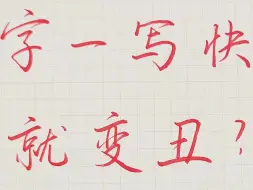 字一写快
就变丑?